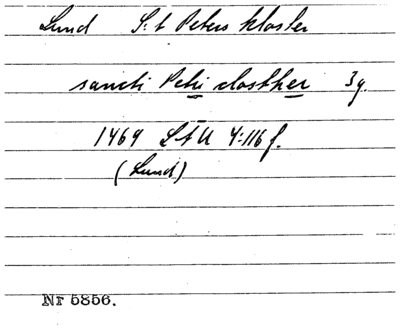 Lund S:t Peters kloster
sancti Petri closther 3 g.
1469 LÄU 4:116 f.
(Lund)
Nr 5856.